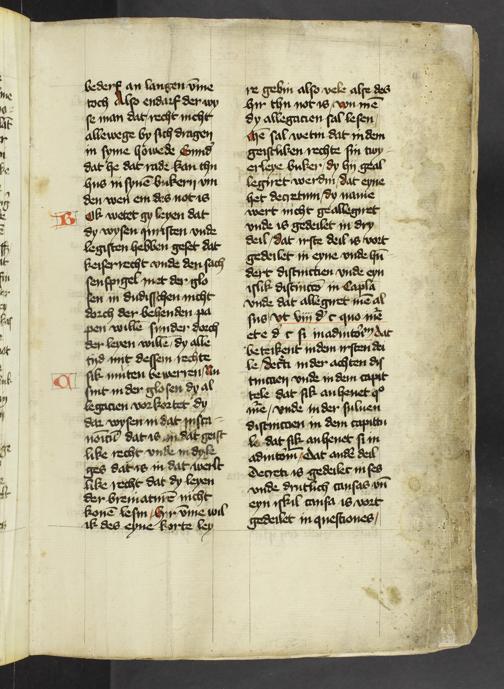 bederf an langen vme
toch Also endarf der wy
se man dat recht nicht
allewege by sich dragen
in syme howede
dat he dat rade kan thu
hus in syne bukern vin
den wen em des not is
Ok wetet gy leyen dat
dy wysen iuristen vnde
legisten hebben geset dat
keiserrecht vnde den sach
senspigel met der glo
sen in dudisschen nicht
dorch der behenden pa
pen wille sunder dorch
der leyen wille dy alle
tid met dessem rechte
sik muten bewerren Nu
sint in der glosen dy al
legacien vorkortet dy
dar wysen in dat
dat is in dat geist
like recht vnde in
ges dat is in dat werlt
like recht dat dy leyen
der grematicien nicht
kone lesin hir vme wil
ik des eyne korte ley
re gebin also vele alse des
hir thu not is wen me
dy allegacien sal lesen
Me sal wetin dat in dem
geistliken rechte sin twy
erleye buker dy hir geal
legiret werdin dat eyne
het decretum dy name
wert nicht geallegiret
vnde is gedeilet in dry
deil dat irste deil is vort
gedeilet in eyne vnde hu
dert distinctien vnde eyn
islik distinctio in Capla
vnde dat allegiret me al
sus vt viii d c quo
et e d c si Dat
betekent in dem irsten dei
le decreti in der achten dis
tinctien vnde in dem capit
tele dat sik anhenet
vnde in der suluen
distinctien in dem capitu
le dat sik anhenet si in
Dat ander deil
Decreti is gedeilet in ses
vnde drutich causas vn
eyn iskil causa is vort
gedeilet in questiones